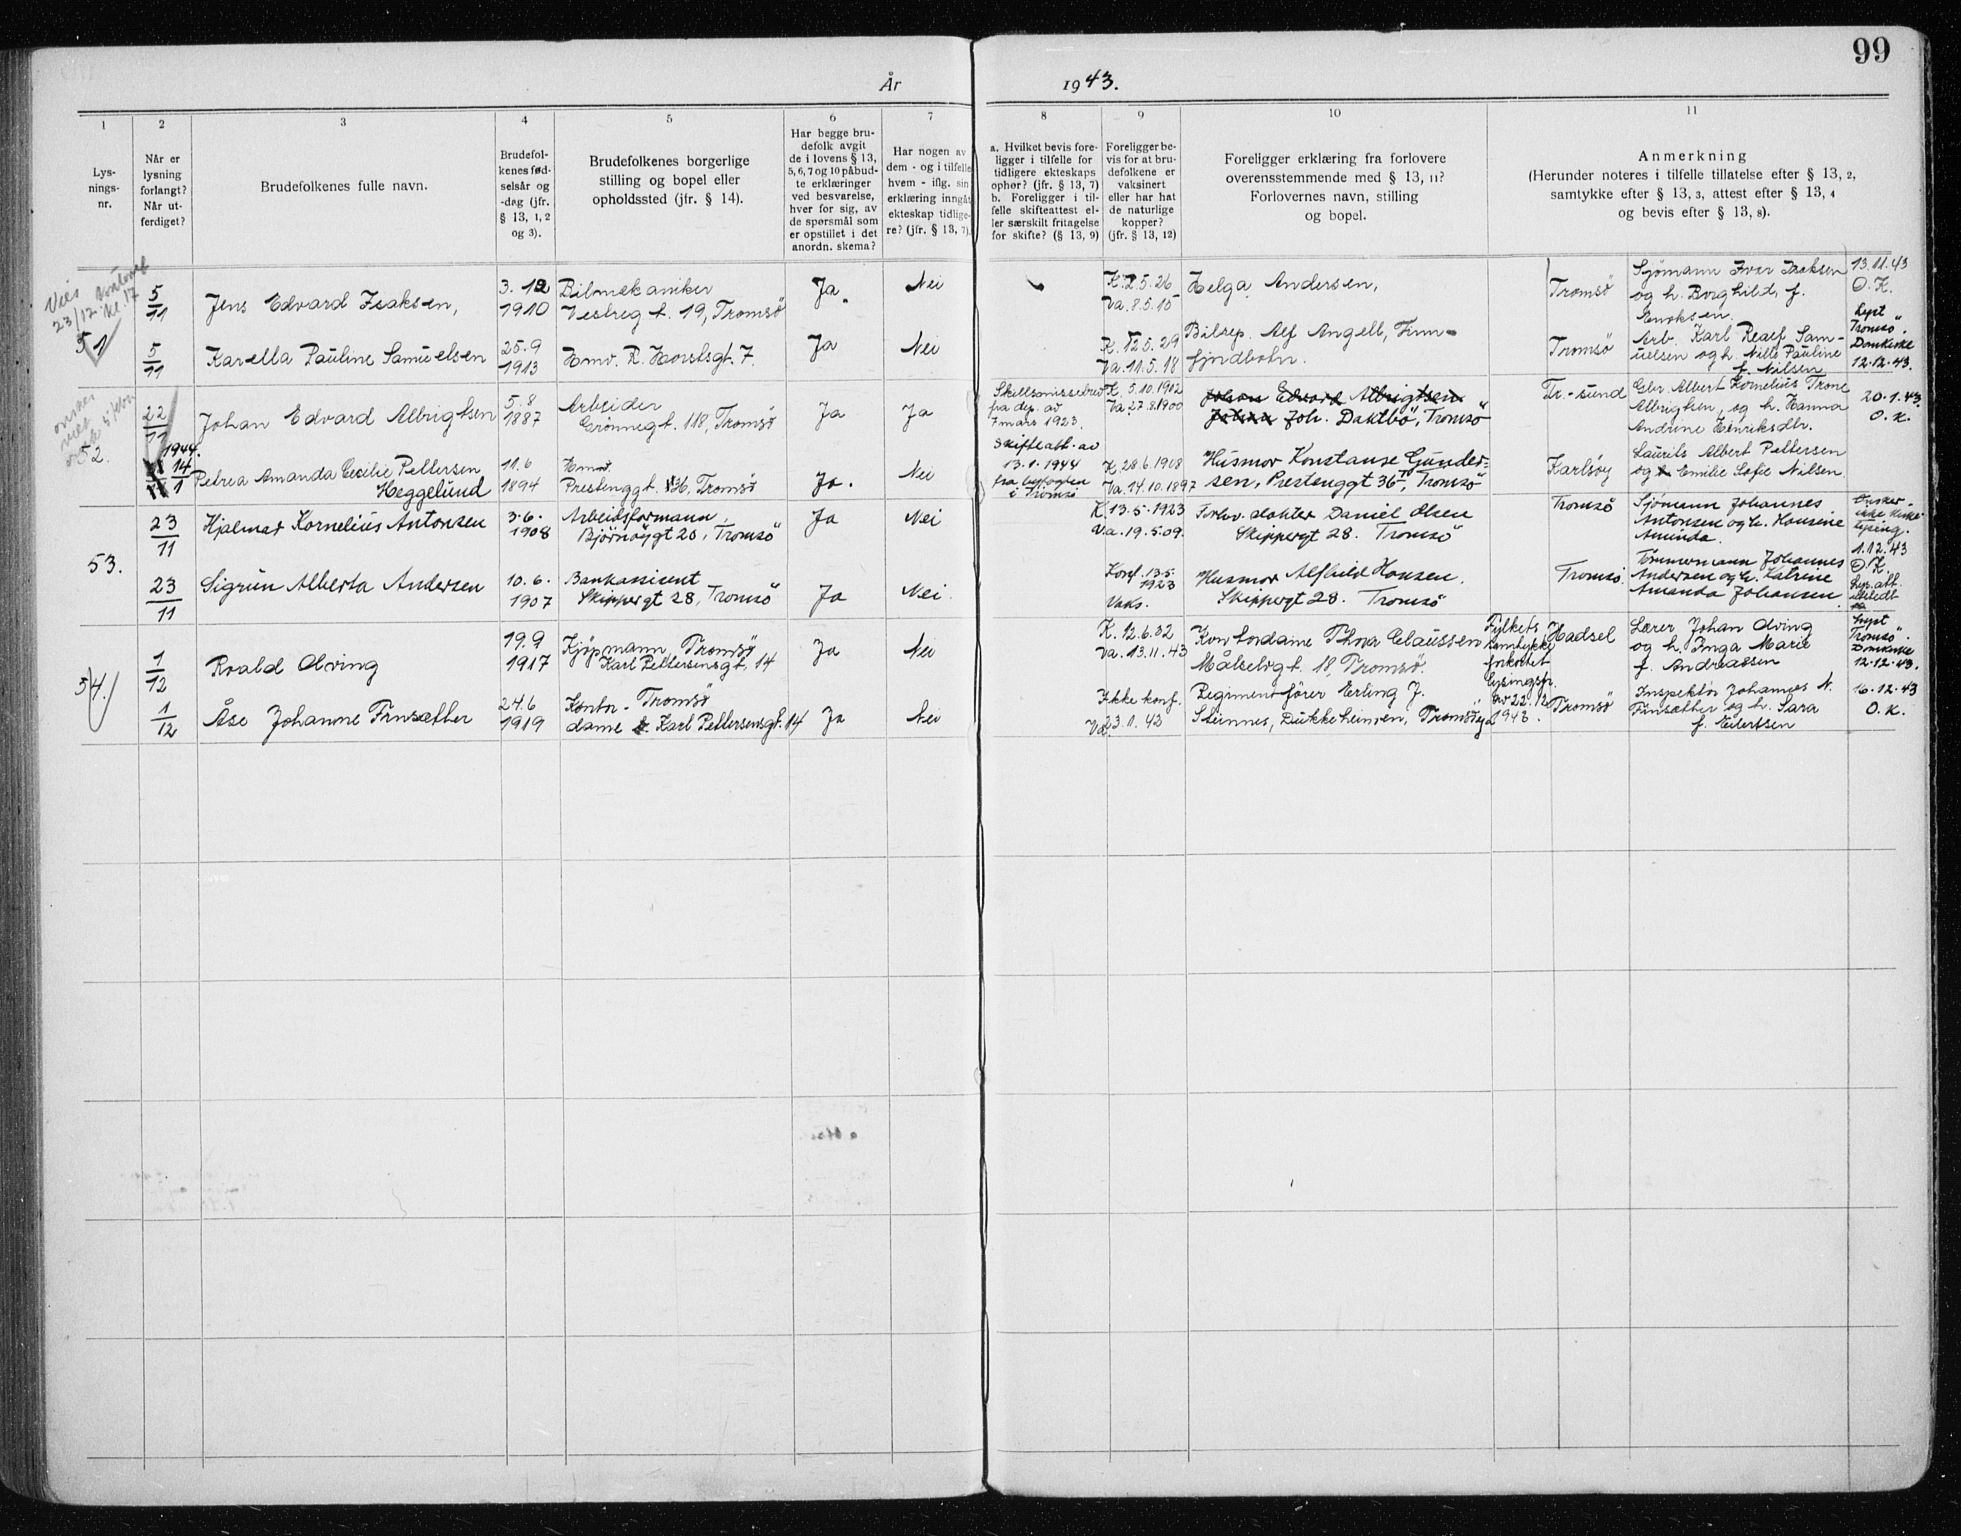 99
År 1943.
1 2 3 4 5 6 7 8 9 10 11
Lys-
nings-
nr.
Når er
lysning
forlangt?
Når ut-
ferdiget?
Brudefolkenes fulle navn.
Brudefol-
kenes fød-
selsår og
-dag (jfr.
§ 13, 1, 2
og 3).
Brudefolkenes borgerlige
stilling og bopel eller
opholdssted (jfr. § 14).
Har begge bru-
defolk avgit
de i lovens § 13,
5, 6, 7 og 10 påbud-
te erklæringer
ved besvarelse,
hver for sig, av
de spørsmål som
er opstillet i det
anordn. skema?
Har nogen av
dem - og i tilfelle
hvem - iflg. sin
erklæring inngåt
ekteskap tidlige-
re? (jfr. § 13, 7).
a. Hvilket bevis fore-
ligger i tilfelle for
tidligere ekteskaps
ophør? (jfr. § 13, 7)
b. Foreligger i til-
felle skifteattest el-
ler særskilt fritagelse
for skifte? (§ 13, 9)
Foreligger be-
vis for at bru-
defolkene er
vaksinert
eller har hat
de naturlige
kopper?
(jfr. § 13, 12)
Foreligger erklæring fra forlovere
overensstemmende med § 13, 11?
Forlovernes navn, stilling
og bopel.
Anmerkning
(Herunder noteres i tilfelle tillatelse efter § 13, 2,
samtykke efter § 13, 3, attest efter § 13, 4
og bevis efter § 13, 8).
Vies
23/12 kl. 17
51
5/11 Jens Edvard Isaksen,
3. 12
1910
Bilmekaniker
Vestregt. 19, Tromsö
Ja Nei
K. 2.5.26
Va. 8.5.15
Helga Andersen,
Tromsö
Sjömann Ivar Isaksen
og h. Borghild, f.
13.11.43
O.K.
5/11 Karella Pauline Samuelsen
25.9
1913
Hmv. R. Horstsgt. 7.
Ja Nei
K. 12.5.29
Va. 11.5.18
Bilrep. Alf Angell, Finn-
fjordbotn.
Tromsö
Arb. Karl Sam-
uelsen og h. Nille Pauline
f. Nilsen
Lyst
Tromsö
Domkirke
12.12.43.
52.
22/11 Johan Edvard Albrigtsen
5.8
1887
Arbeider
Grönnegt. 118, Tromsö
Ja Ja
Skilsmissebrev
fra dep. av
7 mars 1923.
Skifteatt. av
13.1.1944
fra byfogden
i Tromsö
K. 5.10.1902
Va. 27.8.1900
Johan Edvard Albrigtsen
Johan Joh. Daktbö, Tromsö
Tr.-sund
Gbr. Albert Kornelius Trone
Albrigtsen, og h. Hanna
Andrine Henriksdtr.
20.1.43.
O.K.
1944.
14/1 Petrea Amanda Cecilie Pettersen
Heggelund
11.6
1894
Hmv.
Prestenggt. 36, Tromsö
Ja. Nei
K. 28.6.1908
Va. 14.10.1897
Husmor Konstanse Gunder-
sen, Prestenggt 36 I, Tromsö
Karlsöy
Laurits Albert Pettersen
og Emilie Sofie Nilsen
53.
23/11 Hjalmar Kornelius Antonsen
3.6.
1908
Arbeidsformann,
Björnöygt 20, Tromsö
Ja Nei
K. 13.5.1923
Va. 19.5.09.
Forhv. dokter Daniel Olsen
Skippergt 28. Tromsö
Tromsö
Sjömann Johannes
Antonsen og h. Hansine
Aminda.
Ønsker
ikke kirke-
lysing.
1.12.43
O.K.
23/11 Sigrun Alberta Andersen
10.6.
1907
Bankassisent
Skippergt 28, Tromsö
Ja Nei.
Konf. 13.5.
1923
Vaks.
Husmor Alfhild Hansen.
Skippergt 28. Tromsö
Tromsö.
Tömmermann Johannes
Andersen og h. Katrine
Amanda Johansen.
54.
1/12 Roald Hving
19.9
1917
Kjöpmann, Tromsö
Karl Pettersensgt. 14
Ja Nei
K. 12.6.32
Va. 13.11.43
Kontordame Thora Claussen
Målselvgt. 18, Tromsö.
Fylkets
samtykke
lysingsfr.
av 22.12
1943.
Hadsel
Lærer Johan Hving
og h. Inga Marie
f. Andreassen
Lyst
Tromsö
Domkirke
12.12.43.
1/12 Åse Johanne Finsæther
24.6
1919
Kontor- Tromsö
dame Karl Pettersensgt. 14
Ja Nei
Ikke konf.
Va. 23.1.43
Regimentsförer Erling J.
Steinnes, Dukkeheimen, Tromsöya
Tromsö
Inspektör Johannes N.
Finsæther og h. Sara
f. Eilertsen
16.12.43
O.K.